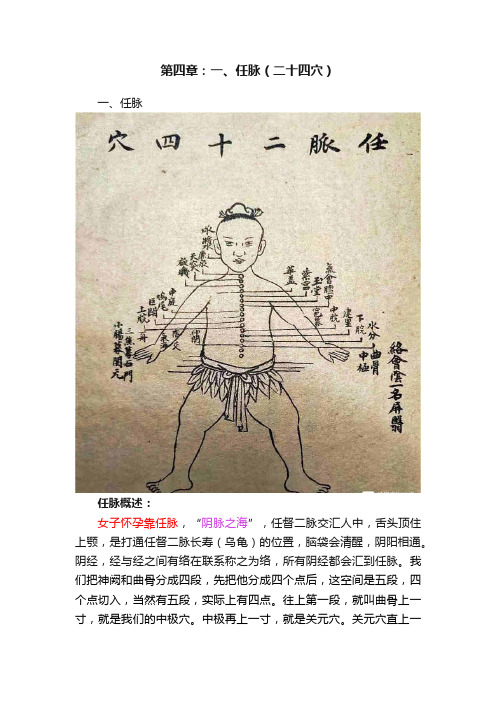 第四章：一、任脉（二十四穴）
一、任脉
任脈二十四穴
廉泉
天突
璇璣
華蓋
紫宮
玉堂
氣會膻中
中庭
鳩尾
巨闕
上脘
中脘
建里
下脘
水分
陰交
氣海
三焦募石門
小腸募関元
曲骨
中極
絡會陰一名屏翳
任脉概述：
女子怀孕靠任脉，“阴脉之海”，任督二脉交汇人中，舌头顶住
上颚，是打通任督二脉长寿（乌龟）的位置，脑袋会清醒，阴阳相通。
阴经，经与经之间有络在联系称之为络，所有阴经都会汇到任脉。我
们把神阙和曲骨分成四段，先把他分成四个点后，这空间是五段，四
个点切入，当然有五段，实际上有四点。往上第一段，就叫曲骨上一
寸，就是我们的中极穴。中极再上一寸，就是关元穴。关元穴直上一